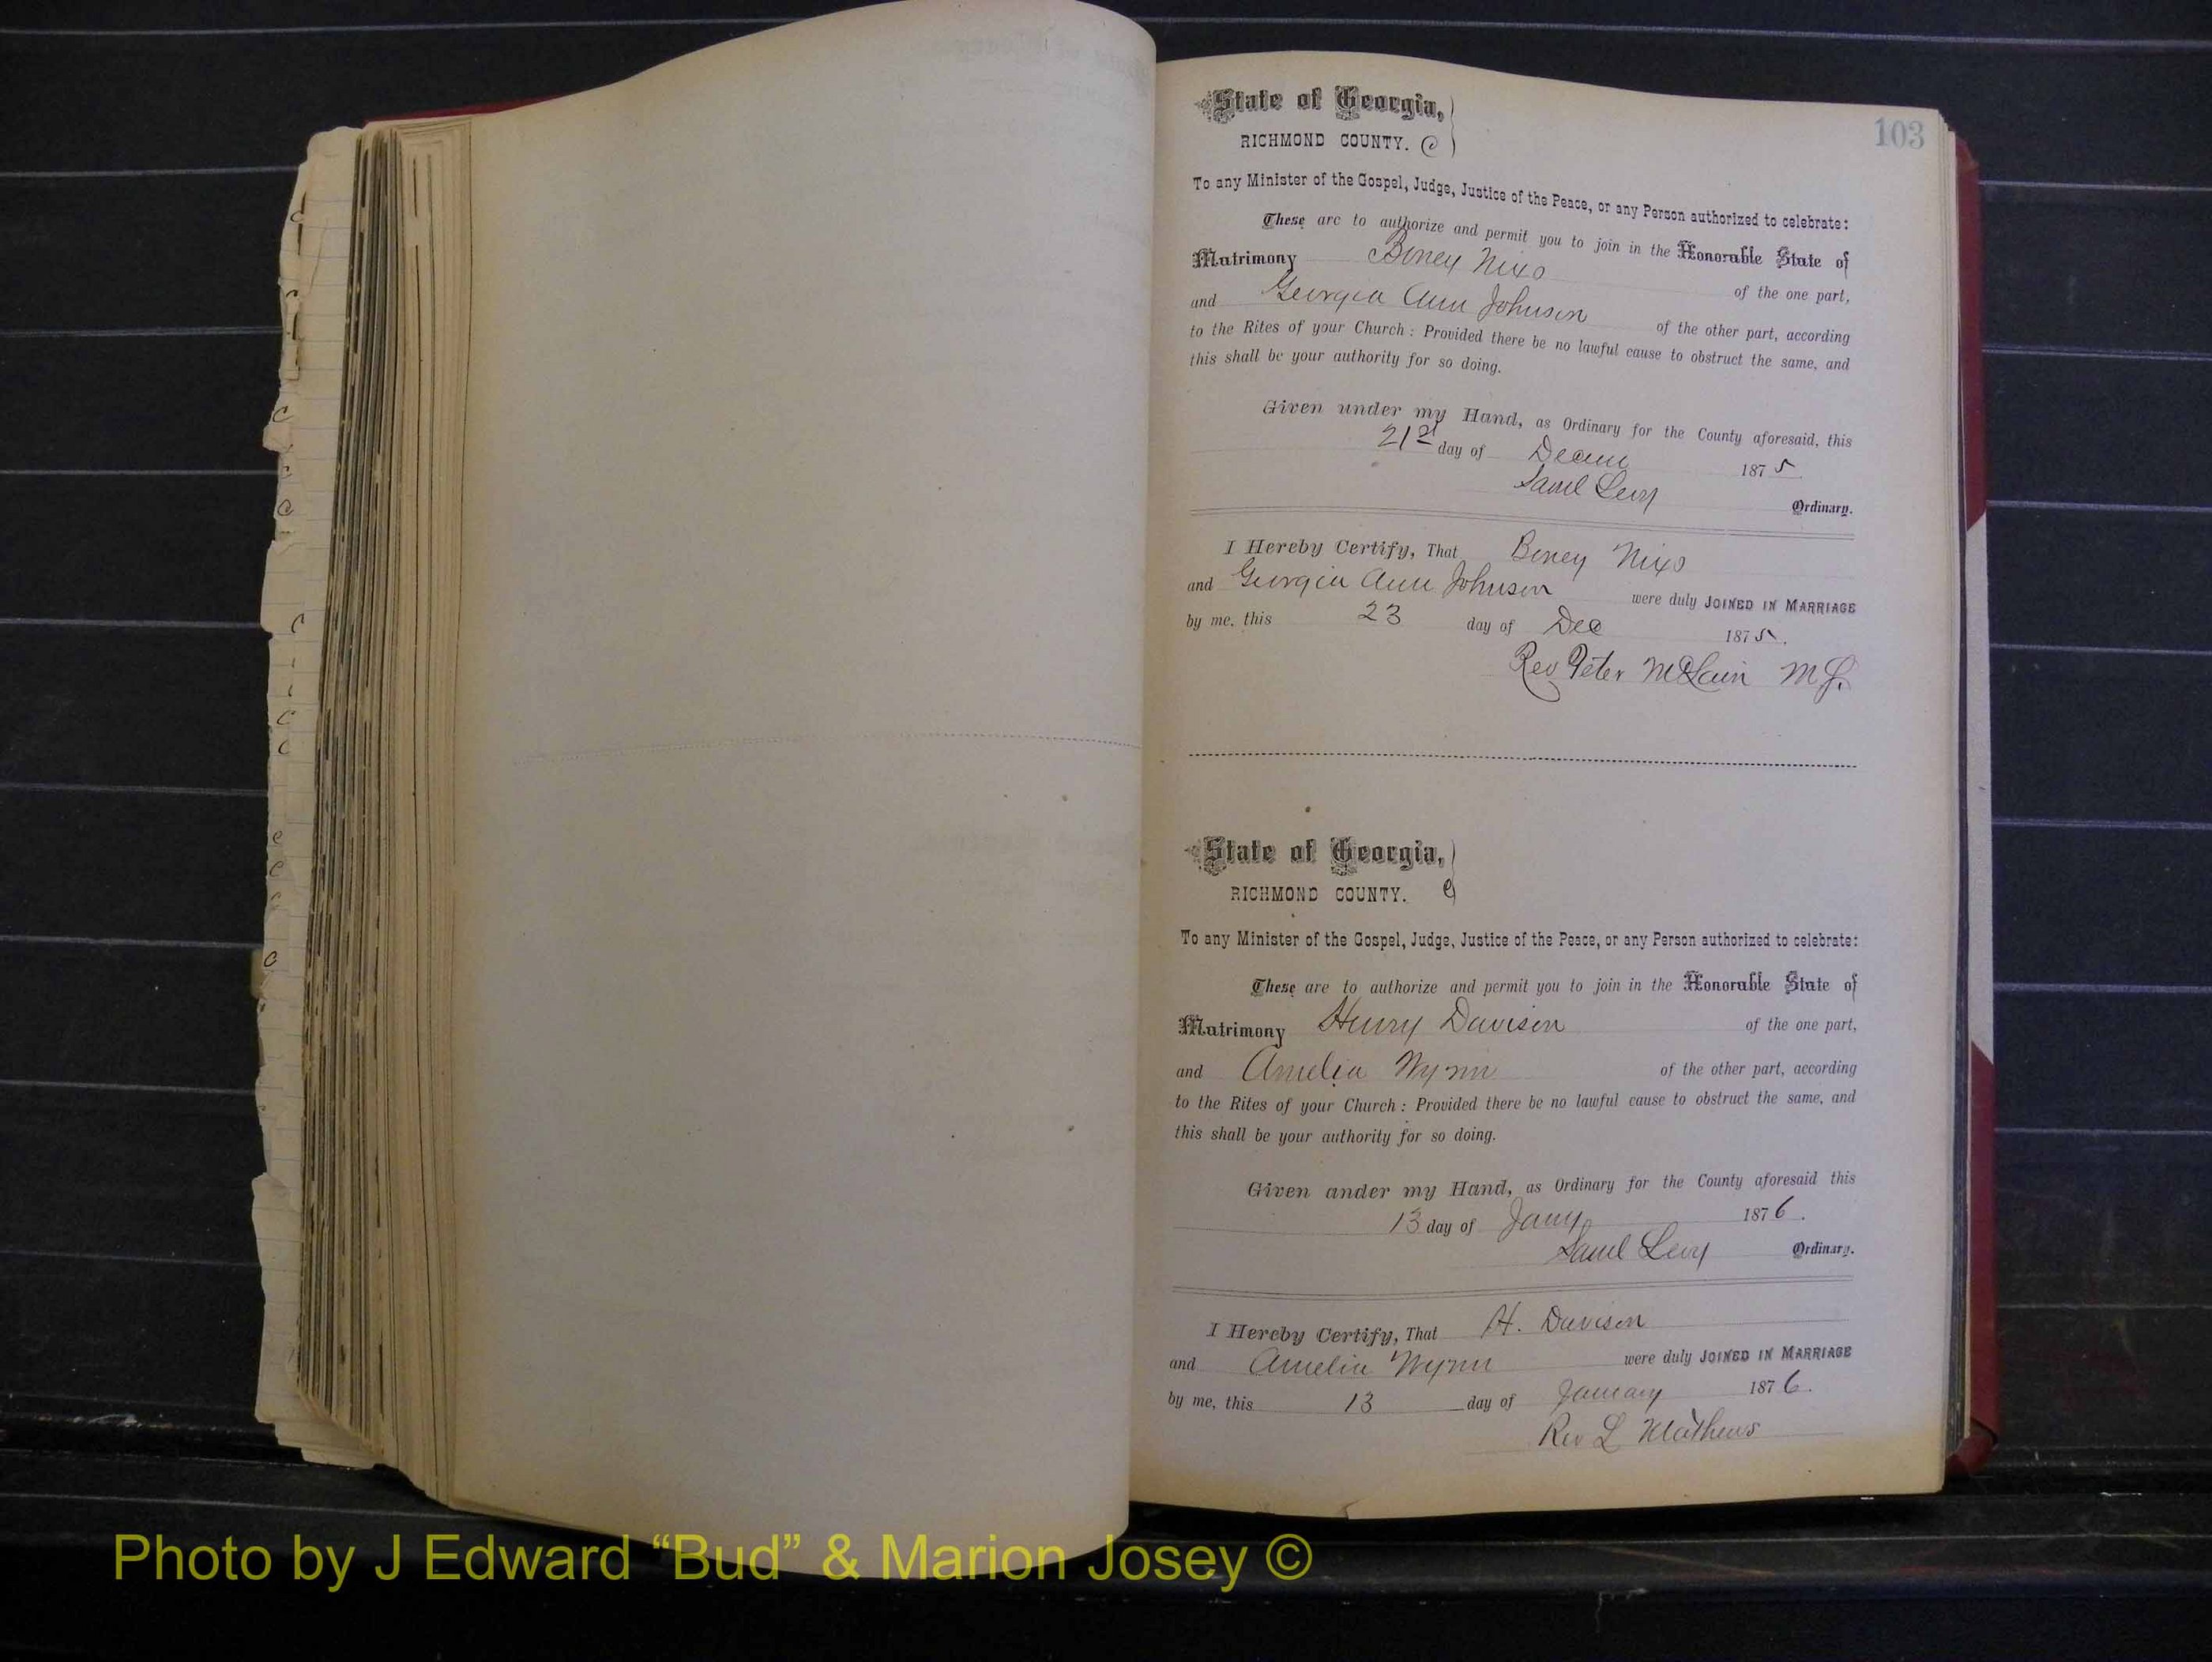 103
State of Georgia,
RICHMOND COUNTY. C
To any Minister of the Gospel, Judge, Justice of the Peace, or any Person authorized to celebrate:
These are to authorize and permit you to join in the Honorable State of
Matrimony Boney Nixo of the one part,
and Georgia Ann Johnson of the other part, according
to the Rites of your Church: Provided there be no lawful cause to obstruct the same, and
this shall be your authority for so doing.
Given under my Hand, as Ordinary for the County aforesaid, this
21st day of Decem 1875
Saml Levy Ordinary.
I Hereby Certify, That Boney Nixo
and Georgia Ann Johnson were duly JOINED IN MARRIAGE
by me, this 23 day of Dec 1875.
Rev Peter McLain M G.
State of Georgia,
RICHMOND COUNTY. C
To any Minister of the Gospel, Judge, Justice of the Peace, or any Person authorized to celebrate:
These are to authorize and permit you to join in the Honorable State of
Matrimony Henry Davison of the one part,
and Amelia Wynn of the other part, according
to the Rites of your Church: Provided there be no lawful cause to obstruct the same, and
this shall be your authority for so doing.
Given under my Hand, as Ordinary for the County aforesaid this
13 day of Jany 1876.
Saml Levy Ordinary.
I Hereby Certify, That H. Davison
and Amelia Wynn were duly JOINED IN MARRIAGE
by me, this 13 day of January 1876.
Rev L Mathews
Photo by J Edward “Bud” & Marion Josey ©